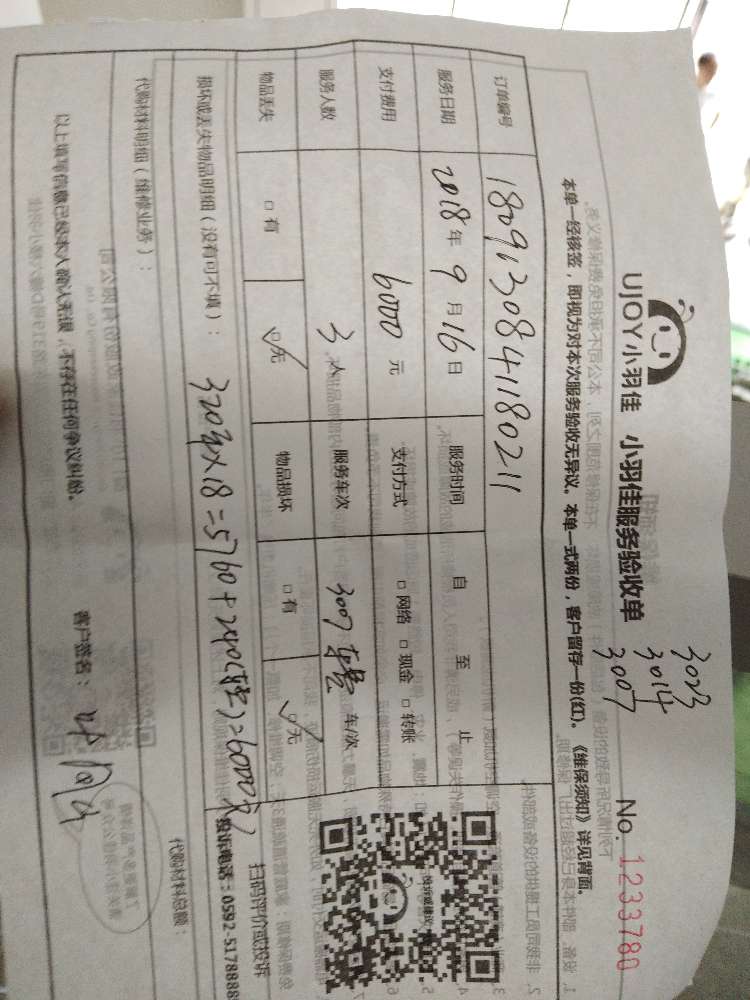 UJOY小羽佳 小羽佳服务验收单
3023
3014
3007
No. 1233780
本单一经核签，即视为对本次服务验收无异议。本单一式两份，客户留存一份(红)。《维保须知》详见背面。
订单编号 1809130841180211
服务日期 2018年9月16日 服务时间 自 至 止
支付费用 6000元 支付方式 □网络 □现金 □转账
服务人数 3人 服务车次 300 车费 车/次
物品丢失 □有 ☑无 物品损坏 □有 ☑无
损坏或丢失物品明细（没有可不填）：
320 × 18 = 5760 + 240 ( ) = 6000元
扫码评价或投诉
投诉电话：0592-5178888
代购材料明细（维修业务）：
代购材料总额：
以上填写信息已经本人确认无误，不存在任何争议纠纷。 客户签名：